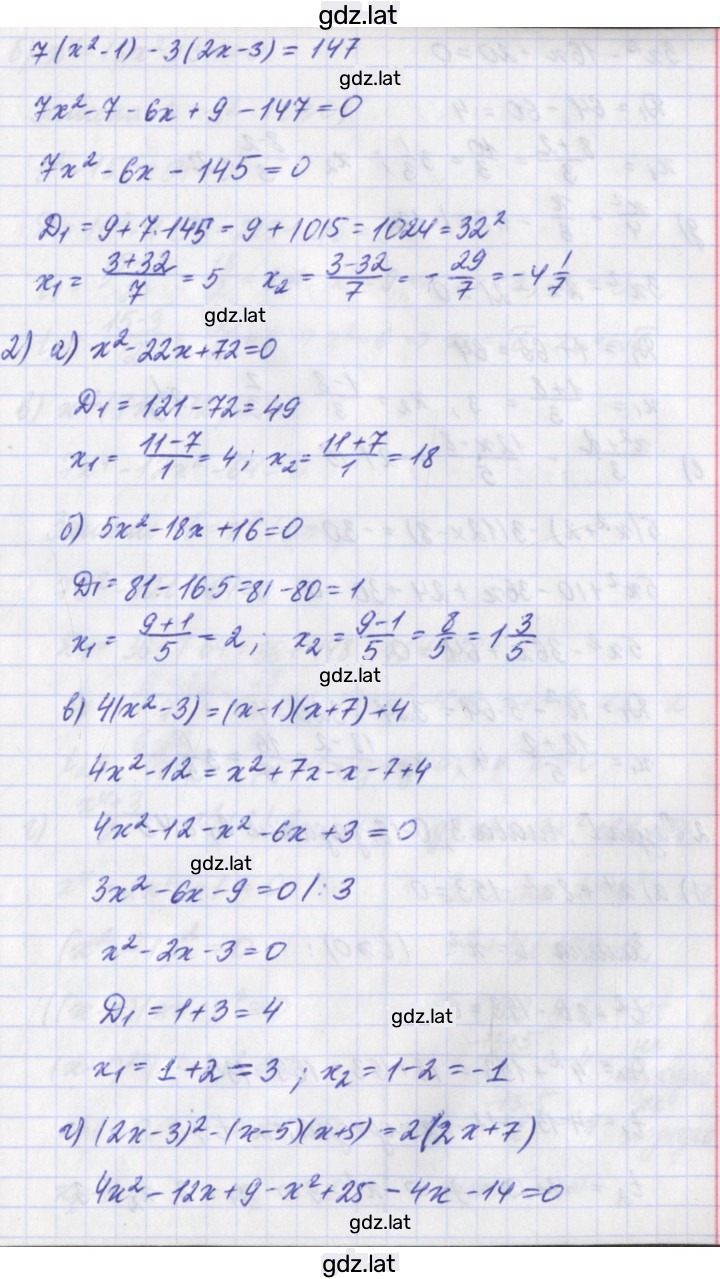 gdz.lat
7(x²-1) - 3(2x-3) = 147
gdz.lat
7x² - 7 - 6x + 9 - 147 = 0
7x² - 6x - 145 = 0
D₁ = 9 + 7·145 = 9 + 1015 = 1024 = 32²
x₁ = (3+32)/7 = 5   x₂ = (3-32)/7 = -29/7 = -4 1/7
gdz.lat
2) а) x² - 22x + 72 = 0
D₁ = 121 - 72 = 49
x₁ = (11-7)/1 = 4; x₂ = (11+7)/1 = 18
б) 5x² - 18x + 16 = 0
D₁ = 81 - 16·5 = 81 - 80 = 1
x₁ = (9+1)/5 = 2; x₂ = (9-1)/5 = 8/5 = 1 3/5
gdz.lat
в) 4(x²-3) = (x-1)(x+7) + 4
4x² - 12 = x² + 7x - x - 7 + 4
4x² - 12 - x² - 6x + 3 = 0
gdz.lat
3x² - 6x - 9 = 0 /: 3
x² - 2x - 3 = 0
D₁ = 1 + 3 = 4
gdz.lat
x₁ = 1 + 2 = 3; x₂ = 1 - 2 = -1
г) (2x-3)² - (x-5)(x+5) = 2(2x+7)
4x² - 12x + 9 - x² + 25 - 4x - 14 = 0
gdz.lat
gdz.lat